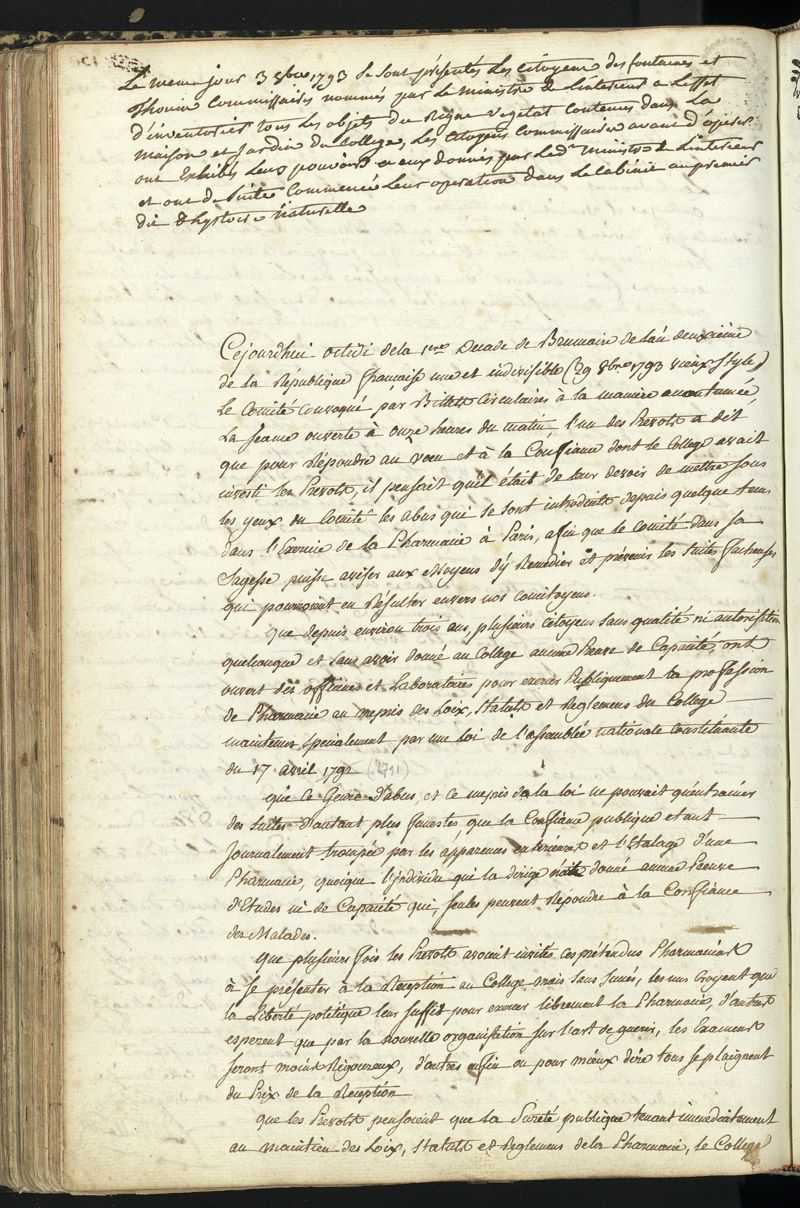 Le meme jour 3 8bre 1793 se sont présentés les citoyens desfontaines et
Thouin Commissaires nommés par le Ministre de Linterieur a Leffet
d'inventorier tous les objets du Regne vegetal contenus dans La
maison et jardin du College, les Citoyens Commissaires avant d'operer
ont Exhibés leurs pouvoirs a eux donnés par led. Ministre de L'interieur
et ont de suite Commencé Leur operation dans Le Cabinet au premier
dit d'hystoire Naturelle
Cejourdhui octidi dela 1ere Decade de Brumaire de l'an deuxieme
de la République française une et indivisible (29 8bre 1793 vieux Style)
Le Comité convoqué par Billets circulaires à la maniere accoutumée,
La seance ouverte à onze heures du matin l'un des Prevots a dit
que pour répondre au voeu et à la Confiance dont le College avait
investi les Prevots, il pensait qu'il était de leur devoir de mettre sous
les yeux du Comité les abus qui se sont introduits depuis quelque tems
dans l'Exercice de la Pharmacie à Paris, afin que le comité dans sa
Sagesse puisse aviser aux Moyens d'y Remedier et prévenir les suites facheuses
qui pourroient en Résulter envers nos concitoyens.
que depuis environ trois ans, plusieurs citoyens sans qualité ni autorisation
quelconque et sans avoir donné au College aucune Preuve de Capacité, ont
ouvert des officines et Laboratoires pour exercer Publiquement la profession
de Pharmacie au mepris des Loix, Statuts et Reglemens du College
maintenus specialement par une loi de l'assemblée nationale constituante
du 17 avril 1792 (1791)
que ce Genre D'abus, et ce mepris de la loi ne pouvait qu'entrainer
des suites d'autant plus funestes, que la Confiance publique etant
journalement trompée par les apparences exterieures et l'Etalage d'une
Pharmacie, quoique l'individu qui la dirige n'ait donné aucune Preuve
d'Etudes ni de Capacité qui, seules peuvent Répondre à la Confiance
des Malades.
que plusieurs fois les Prevots avoient invités ces prétendus Pharmaciens
à se présenter à la Reception au College mais sans succès, les uns Croyent que
la Liberté politique leur suffit pour exercer librement la Pharmacie, d'autres
esperent que par la nouvelle organisation sur l'art de guerir, les Examens
seront moins Rigoureux, d'autres enfin ou pour mieux dire tous se plaignent
du Prix de la Reception
que les Prevots pensoient que la Sureté publique tenant immediatement
au maintien des Loix, Statuts et Reglemens dela Pharmacie, le College